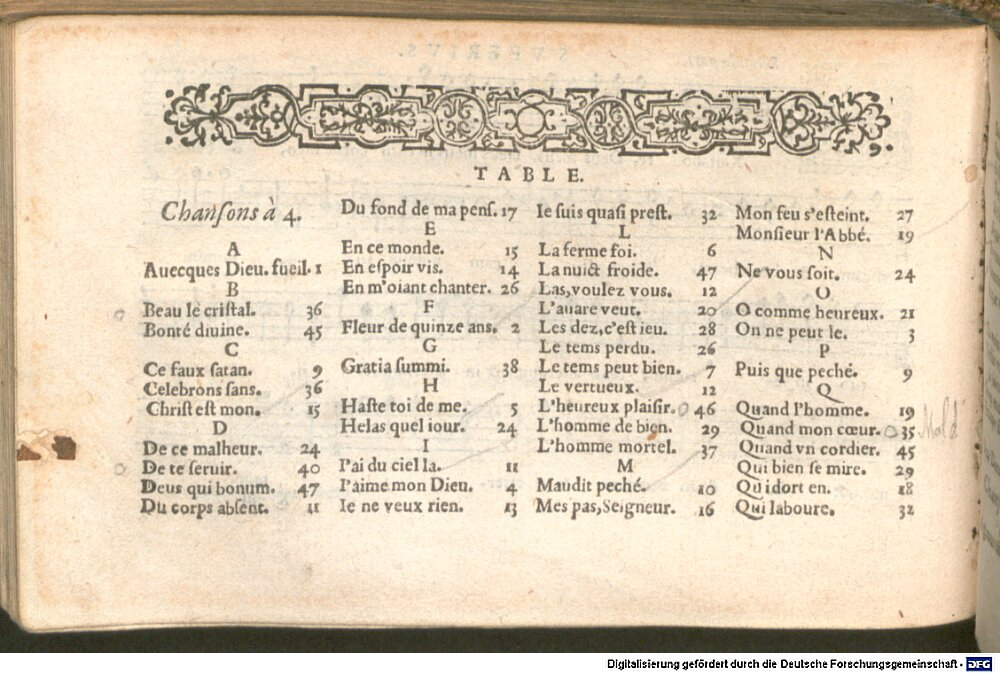 TABLE.
Chanſons à 4.
A
Auecques Dieu. fueil. 1
B
Beau le criſtal. 36
Bonté diuine. 45
C
Ce faux ſatan. 9
Celebrons ſans. 36
Chriſt eſt mon. 15
D
De ce malheur. 24
De te ſeruir. 40
Deus qui bonum. 47
Du corps abſent. 11
Du fond de ma penſ. 17
E
En ce monde. 15
En eſpoir vis. 14
En m'oiant chanter. 26
F
Fleur de quinze ans. 2
G
Gratia ſummi. 38
H
Haſte toi de me. 5
Helas quel iour. 24
I
I'ai du ciel la. 11
I'aime mon Dieu. 4
Ie ne veux rien. 13
Ie ſuis quaſi preſt. 32
L
La ferme foi. 6
La nuict froide. 47
Las, voulez vous. 12
L'auare veut. 20
Les dez, c'eſt ieu. 28
Le tems perdu. 26
Le tems peut bien. 7
Le vertueux. 12
L'heureux plaiſir. 46
L'homme de bien. 29
L'homme mortel. 37
M
Maudit peché. 10
Mes pas, Seigneur. 16
Mon feu s'eſteint. 27
Monſieur l'Abbé. 19
N
Ne vous ſoit. 24
O
O comme heureux. 21
On ne peut le. 3
P
Puis que peché. 9
Q
Quand l'homme. 19
Quand mon cœur. 35
Quand vn cordier. 45
Qui bien ſe mire. 29
Qui dort en. 18
Qui laboure. 32
Digitalisierung gefördert durch die Deutsche Forschungsgemeinschaft - DFG